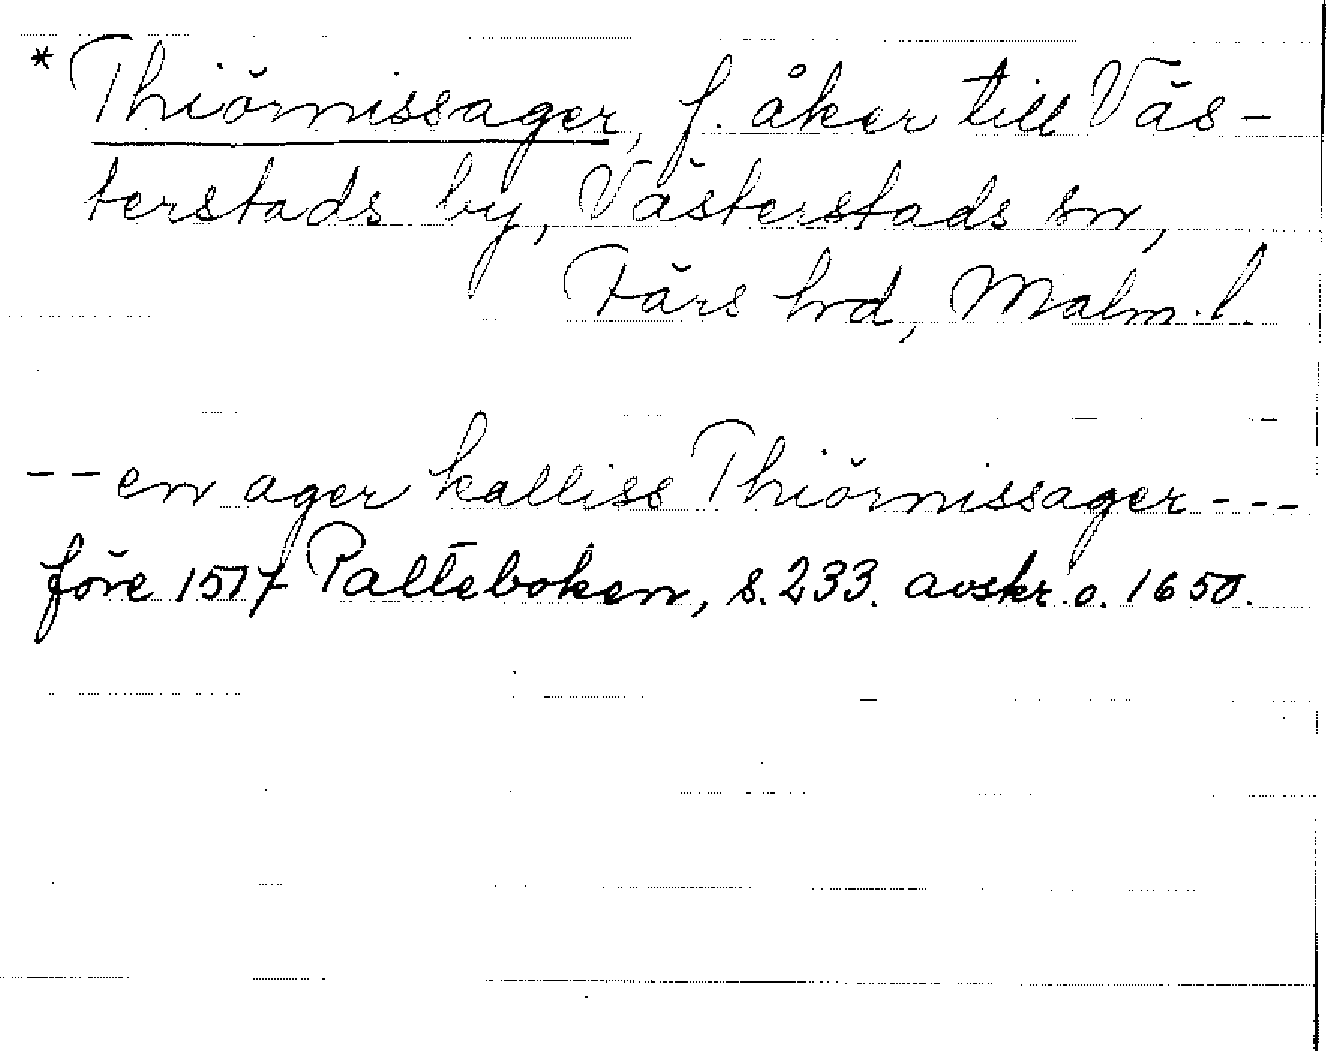 * Thiörnissager, f. åker till Väs-
terstads by, Västerstads sn,
Färs hd, Malm. l.
-- en ager kalliss Thiörnissager ---
före 1517 Palteboken, s. 233. avskr. o. 1650.